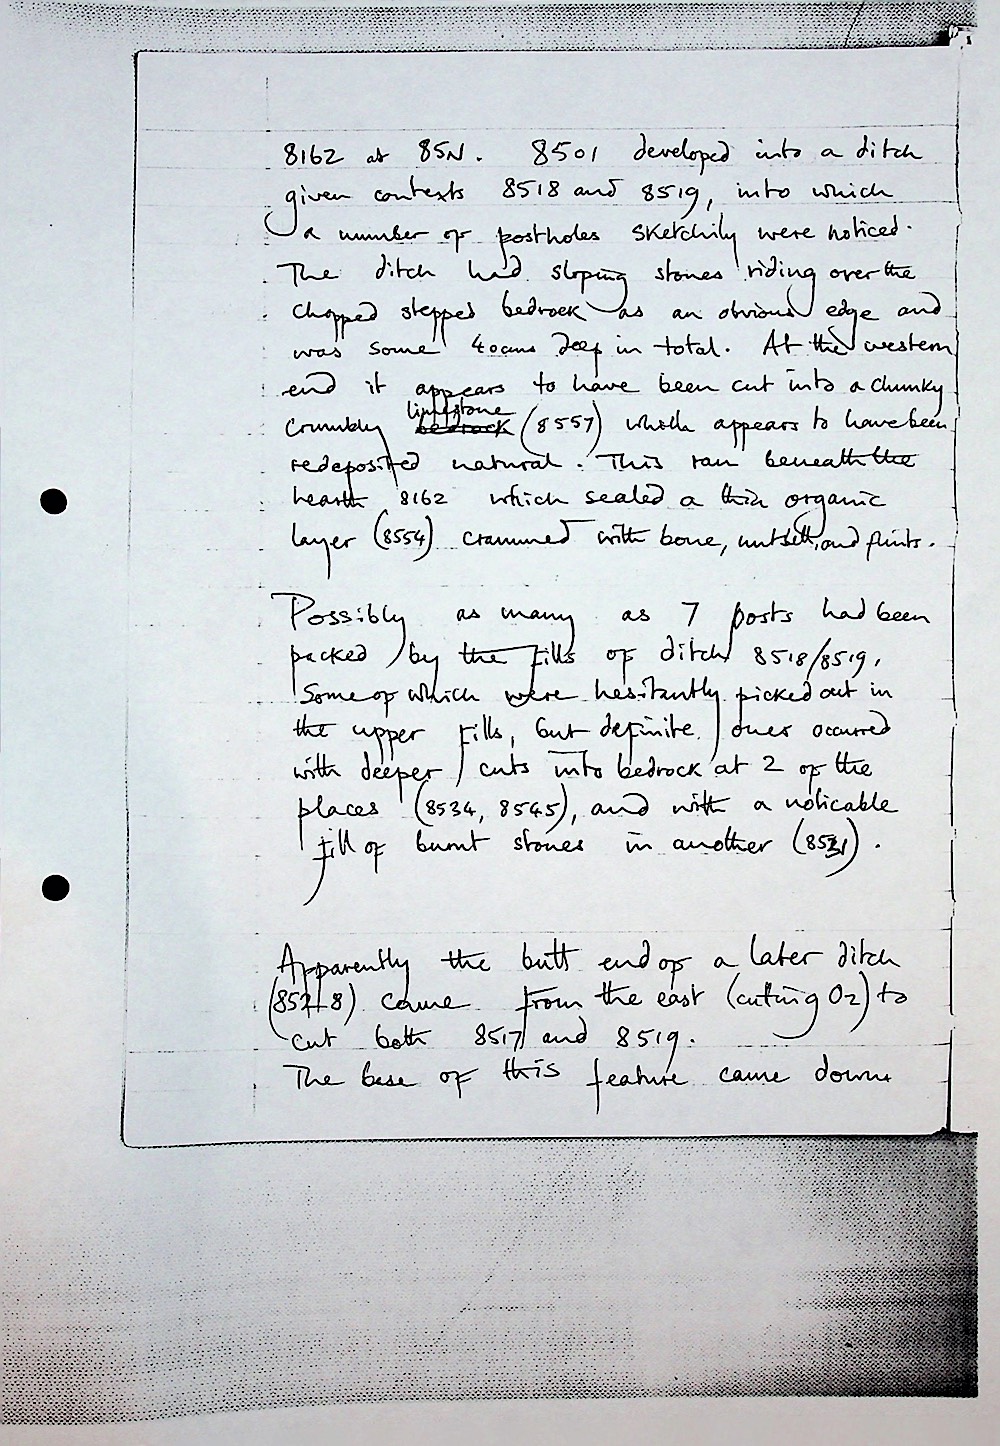 8162 at 85N. 8501 developed into a ditch
given contexts 8518 and 8519, into which
a number of postholes sketchily were noticed.
The ditch had sloping stones riding over the
chopped stepped bedrock as an obvious edge and
was some 40cms deep in total. At the western
end it appears to have been cut into a chunky
crumbly limestone (8557) which appears to have been
redeposited natural. This ran beneath the
hearth 8162 which sealed a thin organic
layer (8554) crammed with bone, nutshell, and flints.
Possibly as many as 7 posts had been
packed by the fills of ditch 8518/8519,
Some of which were hesitantly picked out in
the upper fills, but definite ones occurred
with deeper cuts into bedrock at 2 of the
places (8534, 8545), and with a noticable
fill of burnt stones in another (8531).
Apparently the butt end of a later ditch
came from the east (cutting O2) to
cut both 8517 and 8519.
The base of this feature came down